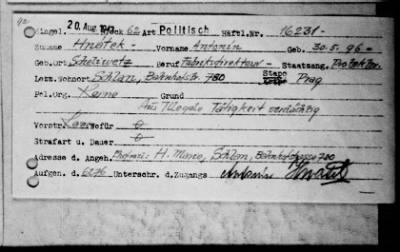 Eingel. 20. Aug. 1942 Block 62 Art Politisch Häftl.Nr. 16231-
Zuname Hnátek- Vorname Antonin Geb. 30.5.96-
Geb.Ort Beruf Fabriksdirektor- Staatsang. Protektor.
Letz.Wohnort Schlan, Bahnhofstr. 780 Stapo Prag
Pol.Org. Keine Grund
Aus Illegale Tätigkeit verdächtig
Vorstr. Wofür
Strafart u. Dauer
Adresse d. Angeh. H. Marie, Schlan, 780
Aufgen. d. 6276 Unterschr. d. Zugangs Antonin Hnátek